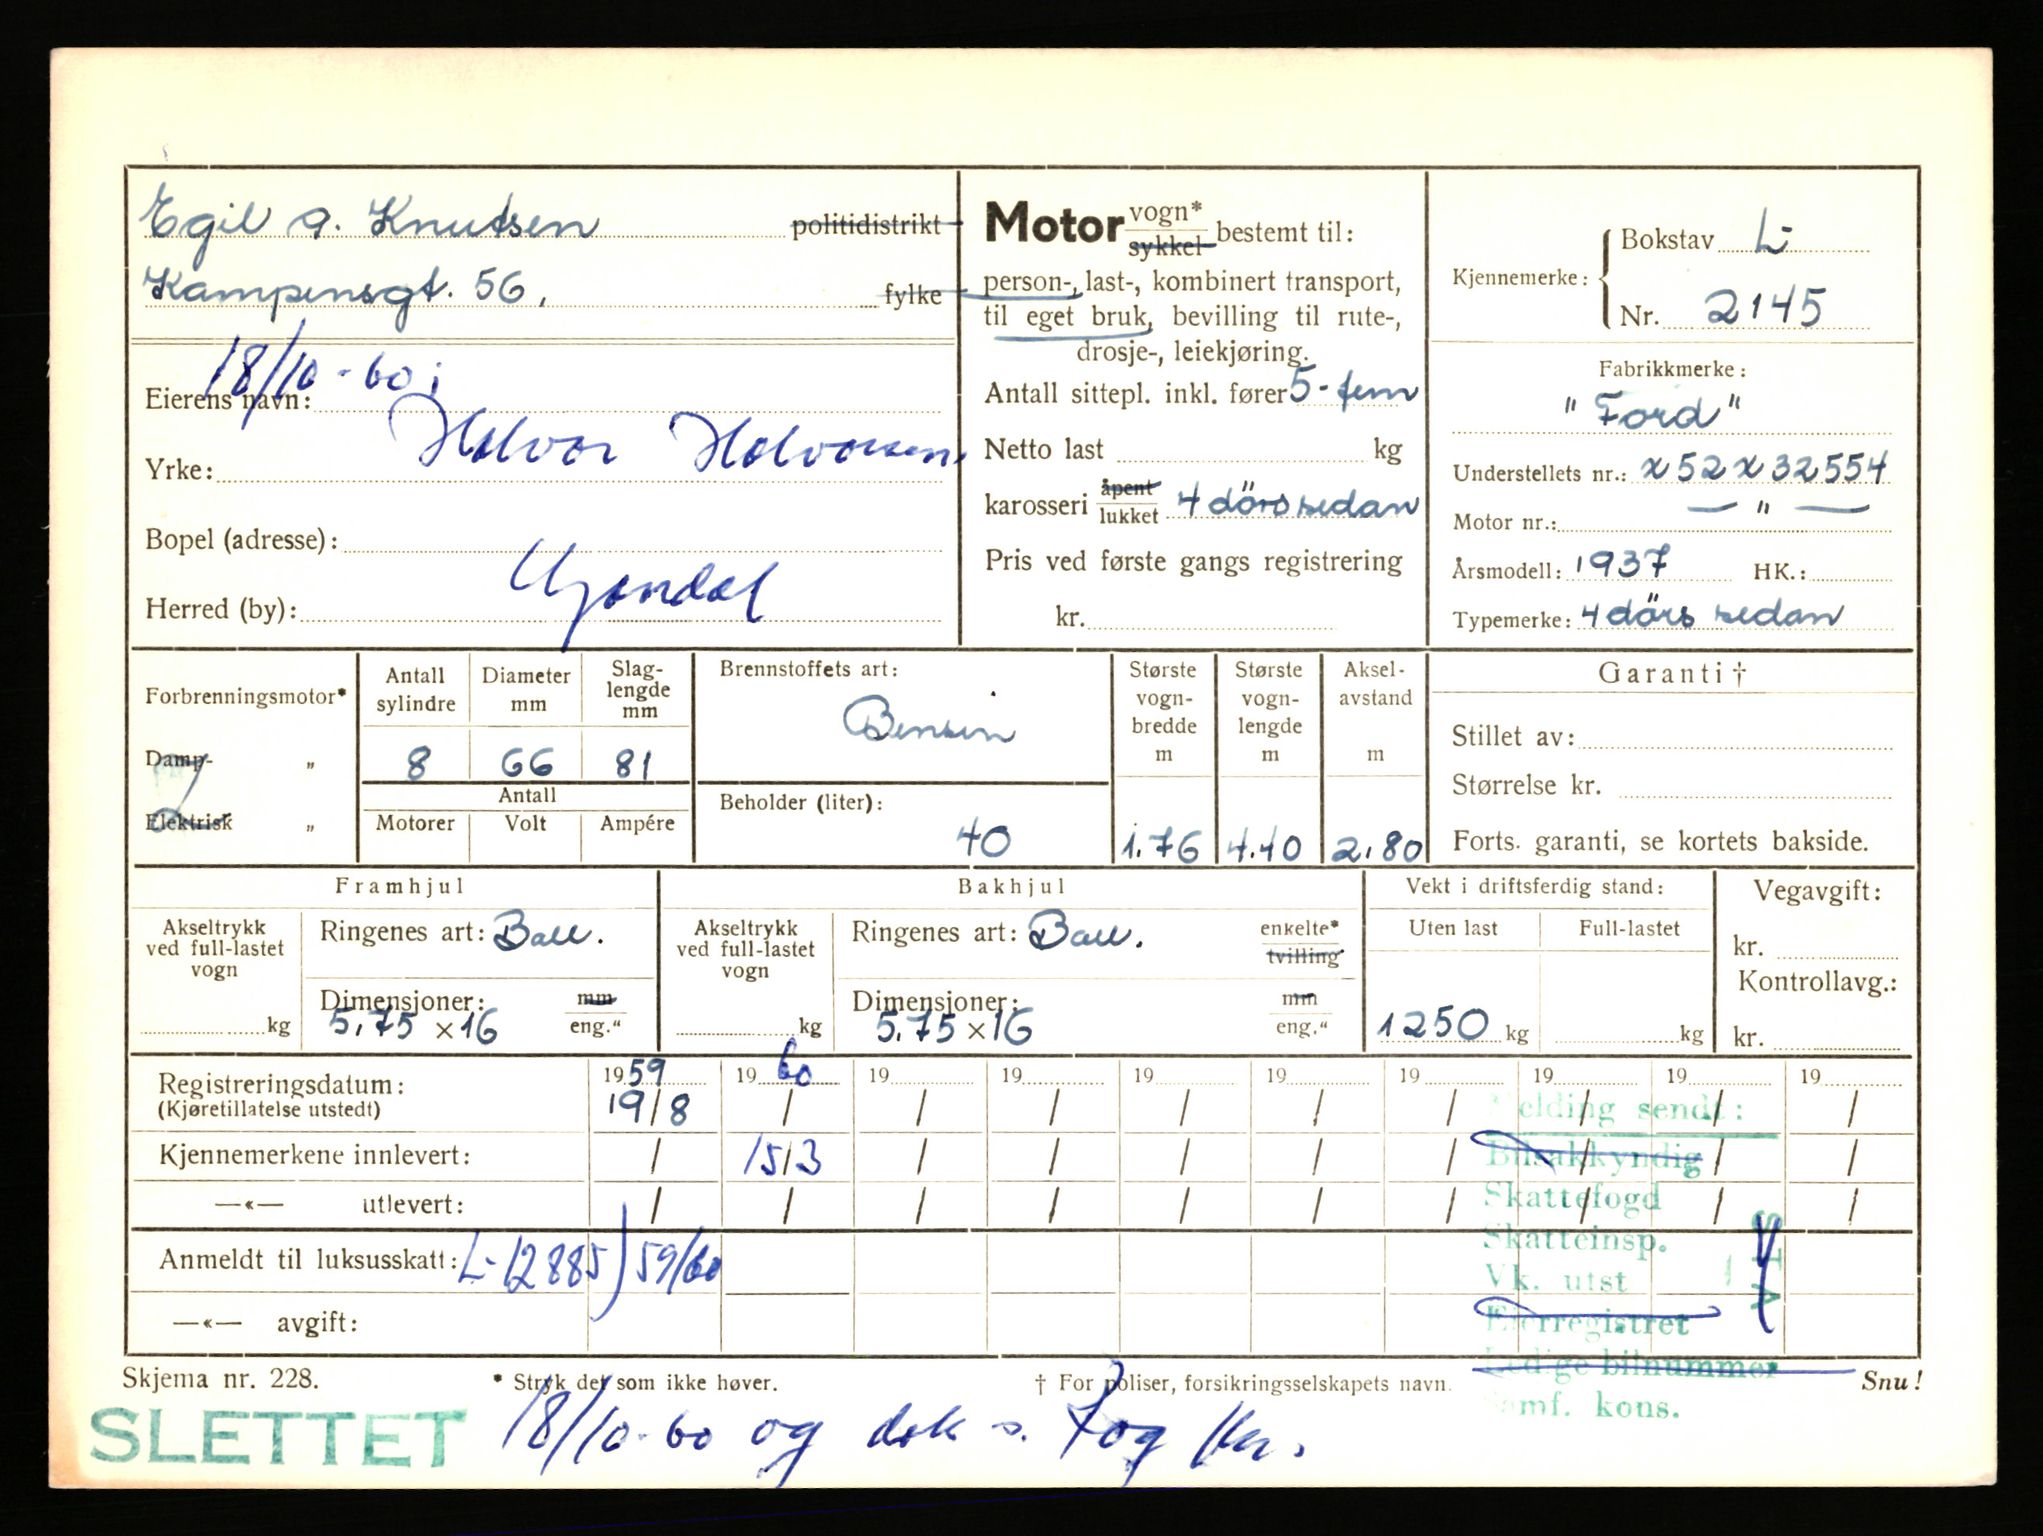 Egil A. Knutsen politidistrikt
Kampensgt. 56, fylke
18/10-60:
Eierens navn:
Halvor Halvorsen,
Yrke:
Bopel (adresse):
Herred (by):
Motor vogn* sykkel bestemt til:
person-, last-, kombinert transport,
til eget bruk, bevilling til rute-,
drosje-, leiekjøring.
Antall sittepl. inkl. fører 5 - fem
Netto last kg
karosseri åpent lukket 4 dörs sedan
Pris ved første gangs registrering
kr.
Kjennemerke: Bokstav L-
Nr. 2145
Fabrikkmerke:
"Ford"
Understellets nr.: x52x32554
Motor nr.: — " —
Årsmodell: 1937 HK.:
Typemerke: 4 dörs sedan
Forbrenningsmotor*
Damp- "
Elektrisk "
Antall sylindre Diameter mm Slag-lengde mm
8 66 81
Antall
Motorer Volt Ampére
Brennstoffets art:
Bensin
Beholder (liter):
40
Største vogn-bredde m Største vogn-lengde m Aksel-avstand m
1.76 4.40 2.80
Garanti †
Stillet av:
Størrelse kr.
Forts. garanti, se kortets bakside.
Framhjul
Akseltrykk
ved full-lastet
vogn
kg
Ringenes art: Ball.
Dimensjoner: mm
5.75 x 16 eng."
Bakhjul
Akseltrykk
ved full-lastet
vogn
kg
Ringenes art: Ball. enkelte* tvilling
Dimensjoner: mm
5.75 x 16 eng."
Vekt i driftsferdig stand:
Uten last Full-lastet
1250 kg kg
Vegavgift:
kr.
Kontrollavg.:
kr.
Registreringsdatum: 1959 1960 19 19 19 19 19 19 19 19
(Kjøretillatelse utstedt) 19/8 / / / / / / / / /
Kjennemerkene innlevert: / 15/3 / / / / / / / /
—«— utlevert: / / / / / / / / / /
Anmeldt til luksusskatt: L-12885) 59/60
—«— avgift:
Melding sendt:
Bilsakkyndig
Skattefogd
Skatteinsp.
Vk. utst
Eierregistret
Ledige bilnummer
Samf. kons.
Skjema nr. 228. * Stryk det som ikke høver. † For poliser, forsikringsselskapets navn. Snu!
SLETTET 18/10-60 og